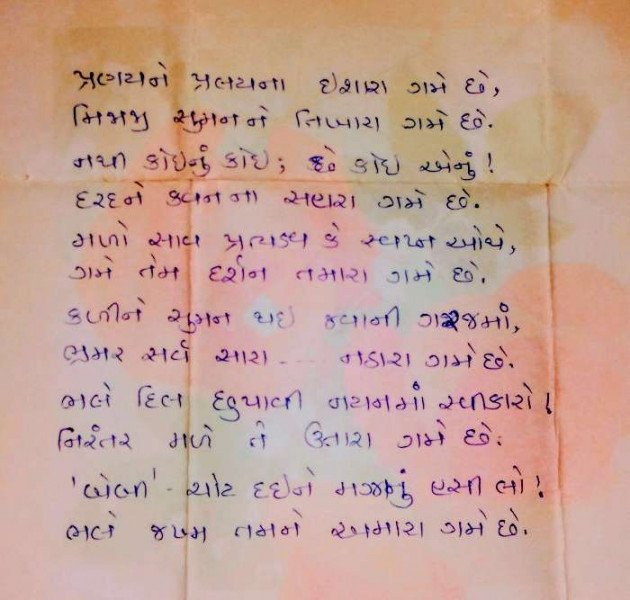 પ્રણયને પ્રલયના ઇશારા ગમે છે,
મિજાજી સુમનને તિખારા ગમે છે.
નથી કોઇનું કોઇ; છતે કોઇ એનું!
દરદને કવનના સહારા ગમે છે.
મળો સાવ પ્રત્યક્ષ કે સ્વપ્ન ઓથે,
ગમે તેમ દર્શન તમારા ગમે છે.
કળીને સુમન થઇ જવાની ગરજમાં,
ભ્રમર સર્વ સારા.... નઠારા ગમે છે.
ભલે દિલ છુપાવી નયનમાં સ્વીકારો!
નિરંતર મળે તે ઉતારા ગમે છે.
'બેબી' - ચોટ દઇને મઝાનું હસી લો!
ભલે જખમ તમને અમારા ગમે છે.